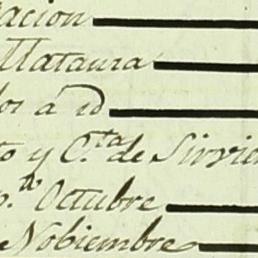 acion
Matanza
os á id
to y C.ta de Sirvie
p.do Octubre
e Nobiembre